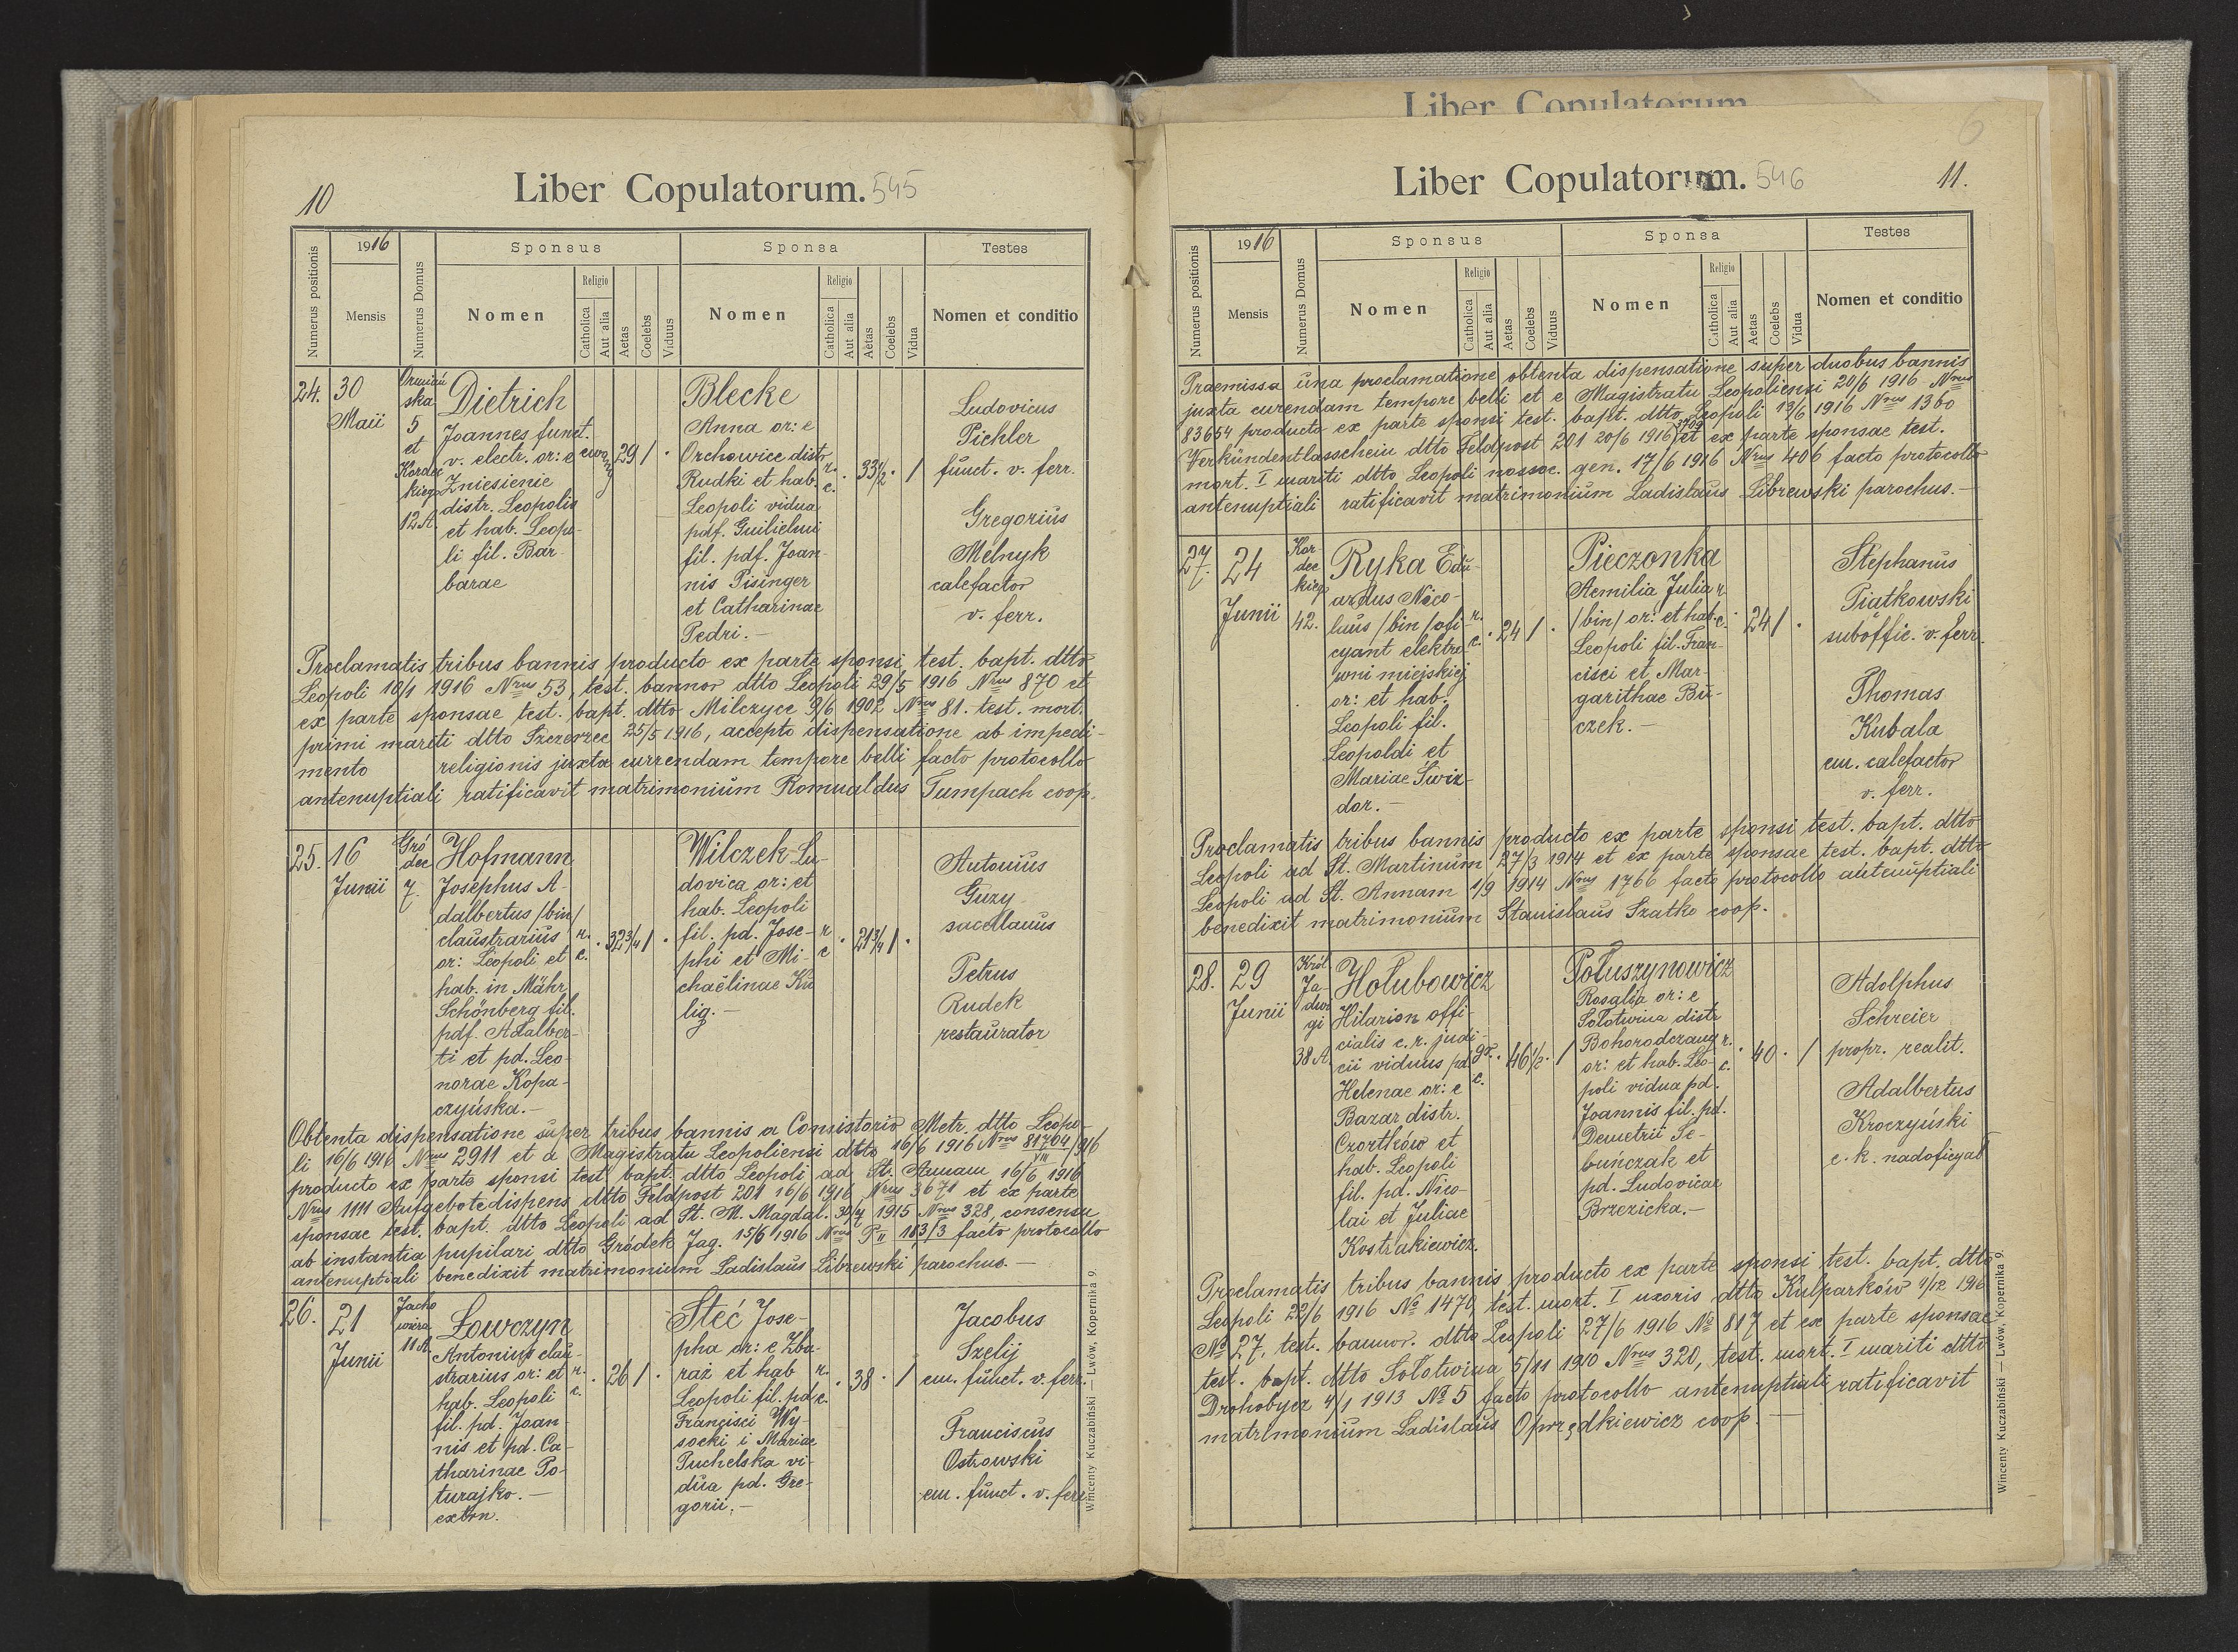 10
Liber Copulatorum. 545
Numerus positionis
1916
Mensis
Numerus Domus
Sponsus
Nomen
Religio
Catholica
Aut alia
Aetas
Coelebs
Viduus
Sponsa
Nomen
Religio
Catholica
Aut alia
Aetas
Coelebs
Vidua
Testes
Nomen et conditio
24.
30
Maii
5
et
Kordec
kiego
12A.
Dietrich
Joannes funct.
v. electr. or: e
Zniesienie
distr. Leopolis
et hab. Leopo-
li fil. Bar-
barae
ewang
29 / .
Blecke
Anna or: e
Orchowice distr.
Rudki et hab.
Leopoli vidua
pdf. Guilielmi
fil. pdf. Joan-
nis Pisinger
et Catharinae
Pedri. —
r.
c.
. 33½ . /
Ludovicus
Pichler
funct. v. ferr.
Gregorius
Melnyk
calefactor
v. ferr.
Proclamatis tribus bannis producto ex parte sponsi test. bapt. dtto
Leopoli 10/1 1916 Nrus 53, test. bannor dtto Leopoli 29/5 1916 Nrus 870 et
ex parte sponsae test. bapt. dtto Milczyce 9/6 1902 Nrus 81. test. mort.
primi mariti dtto Szczerzec 25/5 1916, accepto dispensatione ab impedi-
mento religionis juxta currendam tempore belli facto protocollo
antenuptiali ratificavit matrimonium Romualdus Tumpach coop.
25.
16
Junii
Gró
dec
7.
Hofmann
Josephus A-
dalbertus /bin/
claustrarius
or: Leopoli et
hab. in Mähr.
Schönberg fil.
pdf. Adalber-
ti et pd. Leo-
norae Kopa-
czyńska. —
r.
c.
. 32¾ / .
Wilczek Lu-
dovica or: et
hab. Leopoli
fil. pd. Jose-
phi et Mi-
chaëlinae Ku
lig. —
r
c
. 21¾ / .
Antonius
Guzy
sacellanus
Petrus
Rudek
restaurator
Obtenta dispensatione super tribus bannis a Consistorio Metr. dtto Leopo-
li 16/6 1916 Nrus 2911 et a Magistratu Leopoliensi dtto 16/6 1916 Nrus 81704/916
VIII
producto ex parte sponsi test. bapt. dtto Leopoli ad St. Annam 16/6 1916
Nrus 1111 Aufgebotedispens dtto Feldpost 201 16/6 1916 Nrus 3671 et ex parte
sponsae test. bapt. dtto Leopoli ad St. M. Magdal. 1915 Nrus 328, consensu
ab instantia pupilari dtto Gródek Jag. 15/6 1916 Nrus 183/3 facto protocollo
antenuptiali benedixit matrimonium Ladislaus Librewski parochus. —
26.
21
Junii
11A.
Łowczyn
Antonius clau-
strarius or: et
hab. Leopoli
fil. pd. Joan-
nis et pd. Ca-
tharinae Po-
turajko. —
r.
c.
. 26 / .
Steć Jose-
pha or: e Zba-
raż et hab
Leopoli fil. pd.
Francisci Wy-
socki i Mariae
Puchelska vi-
dua pd. Gre-
gorii. —
r.
c.
. 38 . /
Jacobus
Szelij
em. funct. v. ferr.
Franciscus
Ostrowski
em. funct. v. ferr.
Wincenty Kuczabiński — Lwów, Kopernika 9.
Liber Copulatorum
6
Liber Copulatorum. 546
11.
Numerus positionis
1916
Mensis
Numerus Domus
Sponsus
Nomen
Religio
Catholica
Aut alia
Aetas
Coelebs
Viduus
Sponsa
Nomen
Religio
Catholica
Aut alia
Aetas
Coelebs
Vidua
Testes
Nomen et conditio
Praemissa una proclamatione obtenta dispensatione super duobus bannis
juxta curendam tempore belli et e Magistratu Leopoliensi 20/6 1916 Nrus
83654 producto ex parte sponsi test. bapt. dtto Leopoli 13/6 1916 Nrus 1360
Verkündentlasschein dtto Feldpost 201 20/6 1916 3709 et ex parte sponsae test.
mort. I mariti dtto Leopoli nosoc. gen. 17/6 1916 Nrus 406 facto protocollo
antenuptiali ratificavit matrimonium Ladislaus Librewski parochus. —
27.
24
Junii
Kor
dec
kiego
42.
Ryka Edu-
ardus Nico-
laus /bin/ ofi-
cyant elektro
wni miejskiej
or: et hab.
Leopoli fil.
Leopoldi et
Mariae Świz-
dor. —
r.
c.
. 24 / .
Pieczonka
Aemilia Julia
/bin/ or: et hab
Leopoli fil. Fran-
cisci et Mar-
garithae Bu-
czek. —
r.
c.
. 24 / .
Stephanus
Piatkowski
suboffic. v. ferr.
Thomas
Kubala
em. calefactor
v. ferr.
Proclamatis tribus bannis producto ex parte sponsi test. bapt. dtto
Leopoli ad St. Martinum 27/3 1914 et ex parte sponsae test. bapt. dtto
Leopoli ad St. Annam 1/9 1914 Nrus 1766 facto protocollo antenuptiali
benedixit matrimonium Stanislaus Szatko coop.
28.
29
Junii
Król.
Ja-
dwi
gi
38A.
Hołubowicz
Hilarion offi-
cialis c. r. judi-
cii viduus pd
Helenae or: e
Bazar distr.
Czortków et
hab. Leopoli
fil. pd. Nico-
lai et Juliae
Kostrakiewicz.
gr.
c.
. 46½ . /
Połuszynowicz
Rosalia or: e
Sołotwina distr
Bohorodczany
or: et hab. Leo-
poli vidua pd.
Joannis fil. pd.
Demetrii Se-
buńczak et
pd. Ludovicae
Brzezicka. —
r.
c.
. 40 . /
Adolphus
Schreier
propr. realit.
Adalbertus
Kroczyński
c. k. nadoficyał
Proclamatis tribus bannis producto ex parte sponsi test. bapt. dtto
Leopoli 22/6 1916 No 1470, test. mort. I uxoris dtto Kulparków 4/12 1916
No 27, test. bannor. dtto Leopoli 27/6 1916 No 817 et ex parte sponsae
test. bapt. dtto Sołotwina 5/11 1910 Nrus 320, test. mort. I mariti dtto
Drohobycz 4/1 1913 No 5 facto protocollo antenuptiali ratificavit
matrimonium Ladislaus Oprzędkiewicz coop. —
Wincenty Kuczabiński — Lwów, Kopernika 9.